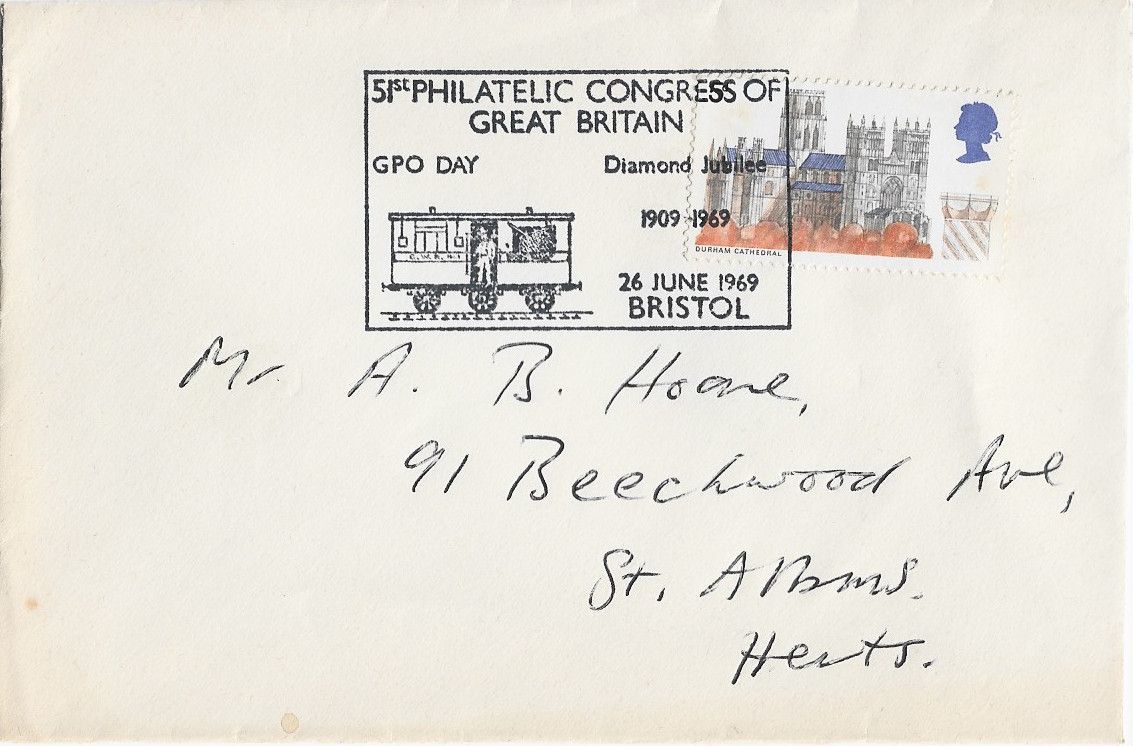 51st PHILATELIC CONGRESS OF
GREAT BRITAIN
GPO DAY Diamond Jubilee
1909-1969
26 JUNE 1969
BRISTOL
DURHAM CATHEDRAL
Mr. A. B. Hoare,
91 Beechwood Ave,
St. Albans.
Herts.